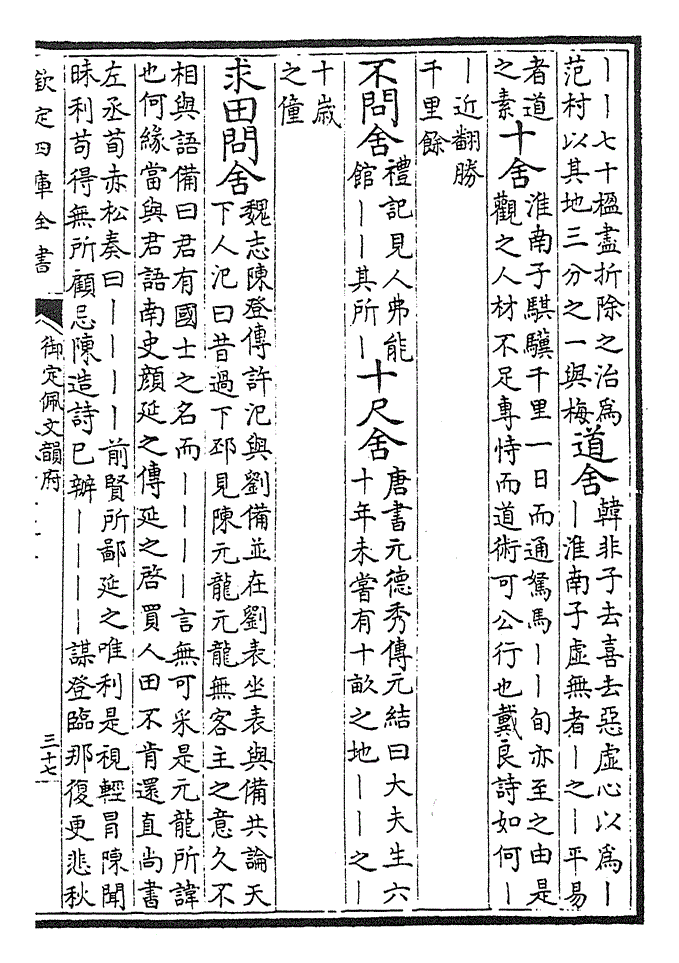 丨丨七十楹盡折除之治為
范村以其地三分之一與梅
道舍
韓非子去喜去惡虛心以為丨
丨淮南子虛無者丨之丨平易
者道
之素
十舍
淮南子騏驥千里一日而通駑馬丨丨旬亦至之由是
觀之人材不足專恃而道術可公行也戴良詩如何丨
丨近翻勝
千里餘
不問舍
禮記見人弗能
館丨丨其所丨
十尺舍
唐書元德秀傳元結曰大夫生六
十年未嘗有十畝之地丨丨之丨
十歲
之僮
求田問舍
魏志陳登傳許汜與劉備並在劉表坐表與備共論天
下人汜曰昔過下邳見陳元龍元龍無客主之意久不
相與語備曰君有國士之名而丨丨丨丨言無可采是元龍所諱
也何緣當與君語南史顏延之傳延之啓買人田不肯還直尚書
左丞荀赤松奏曰丨丨丨丨前賢所鄙延之唯利是視輕冒陳聞
昧利苟得無所顧忌陳造詩已辦丨丨丨丨謀登臨那復更悲秋
欽定四庫全書
御定佩文韻府
三十七